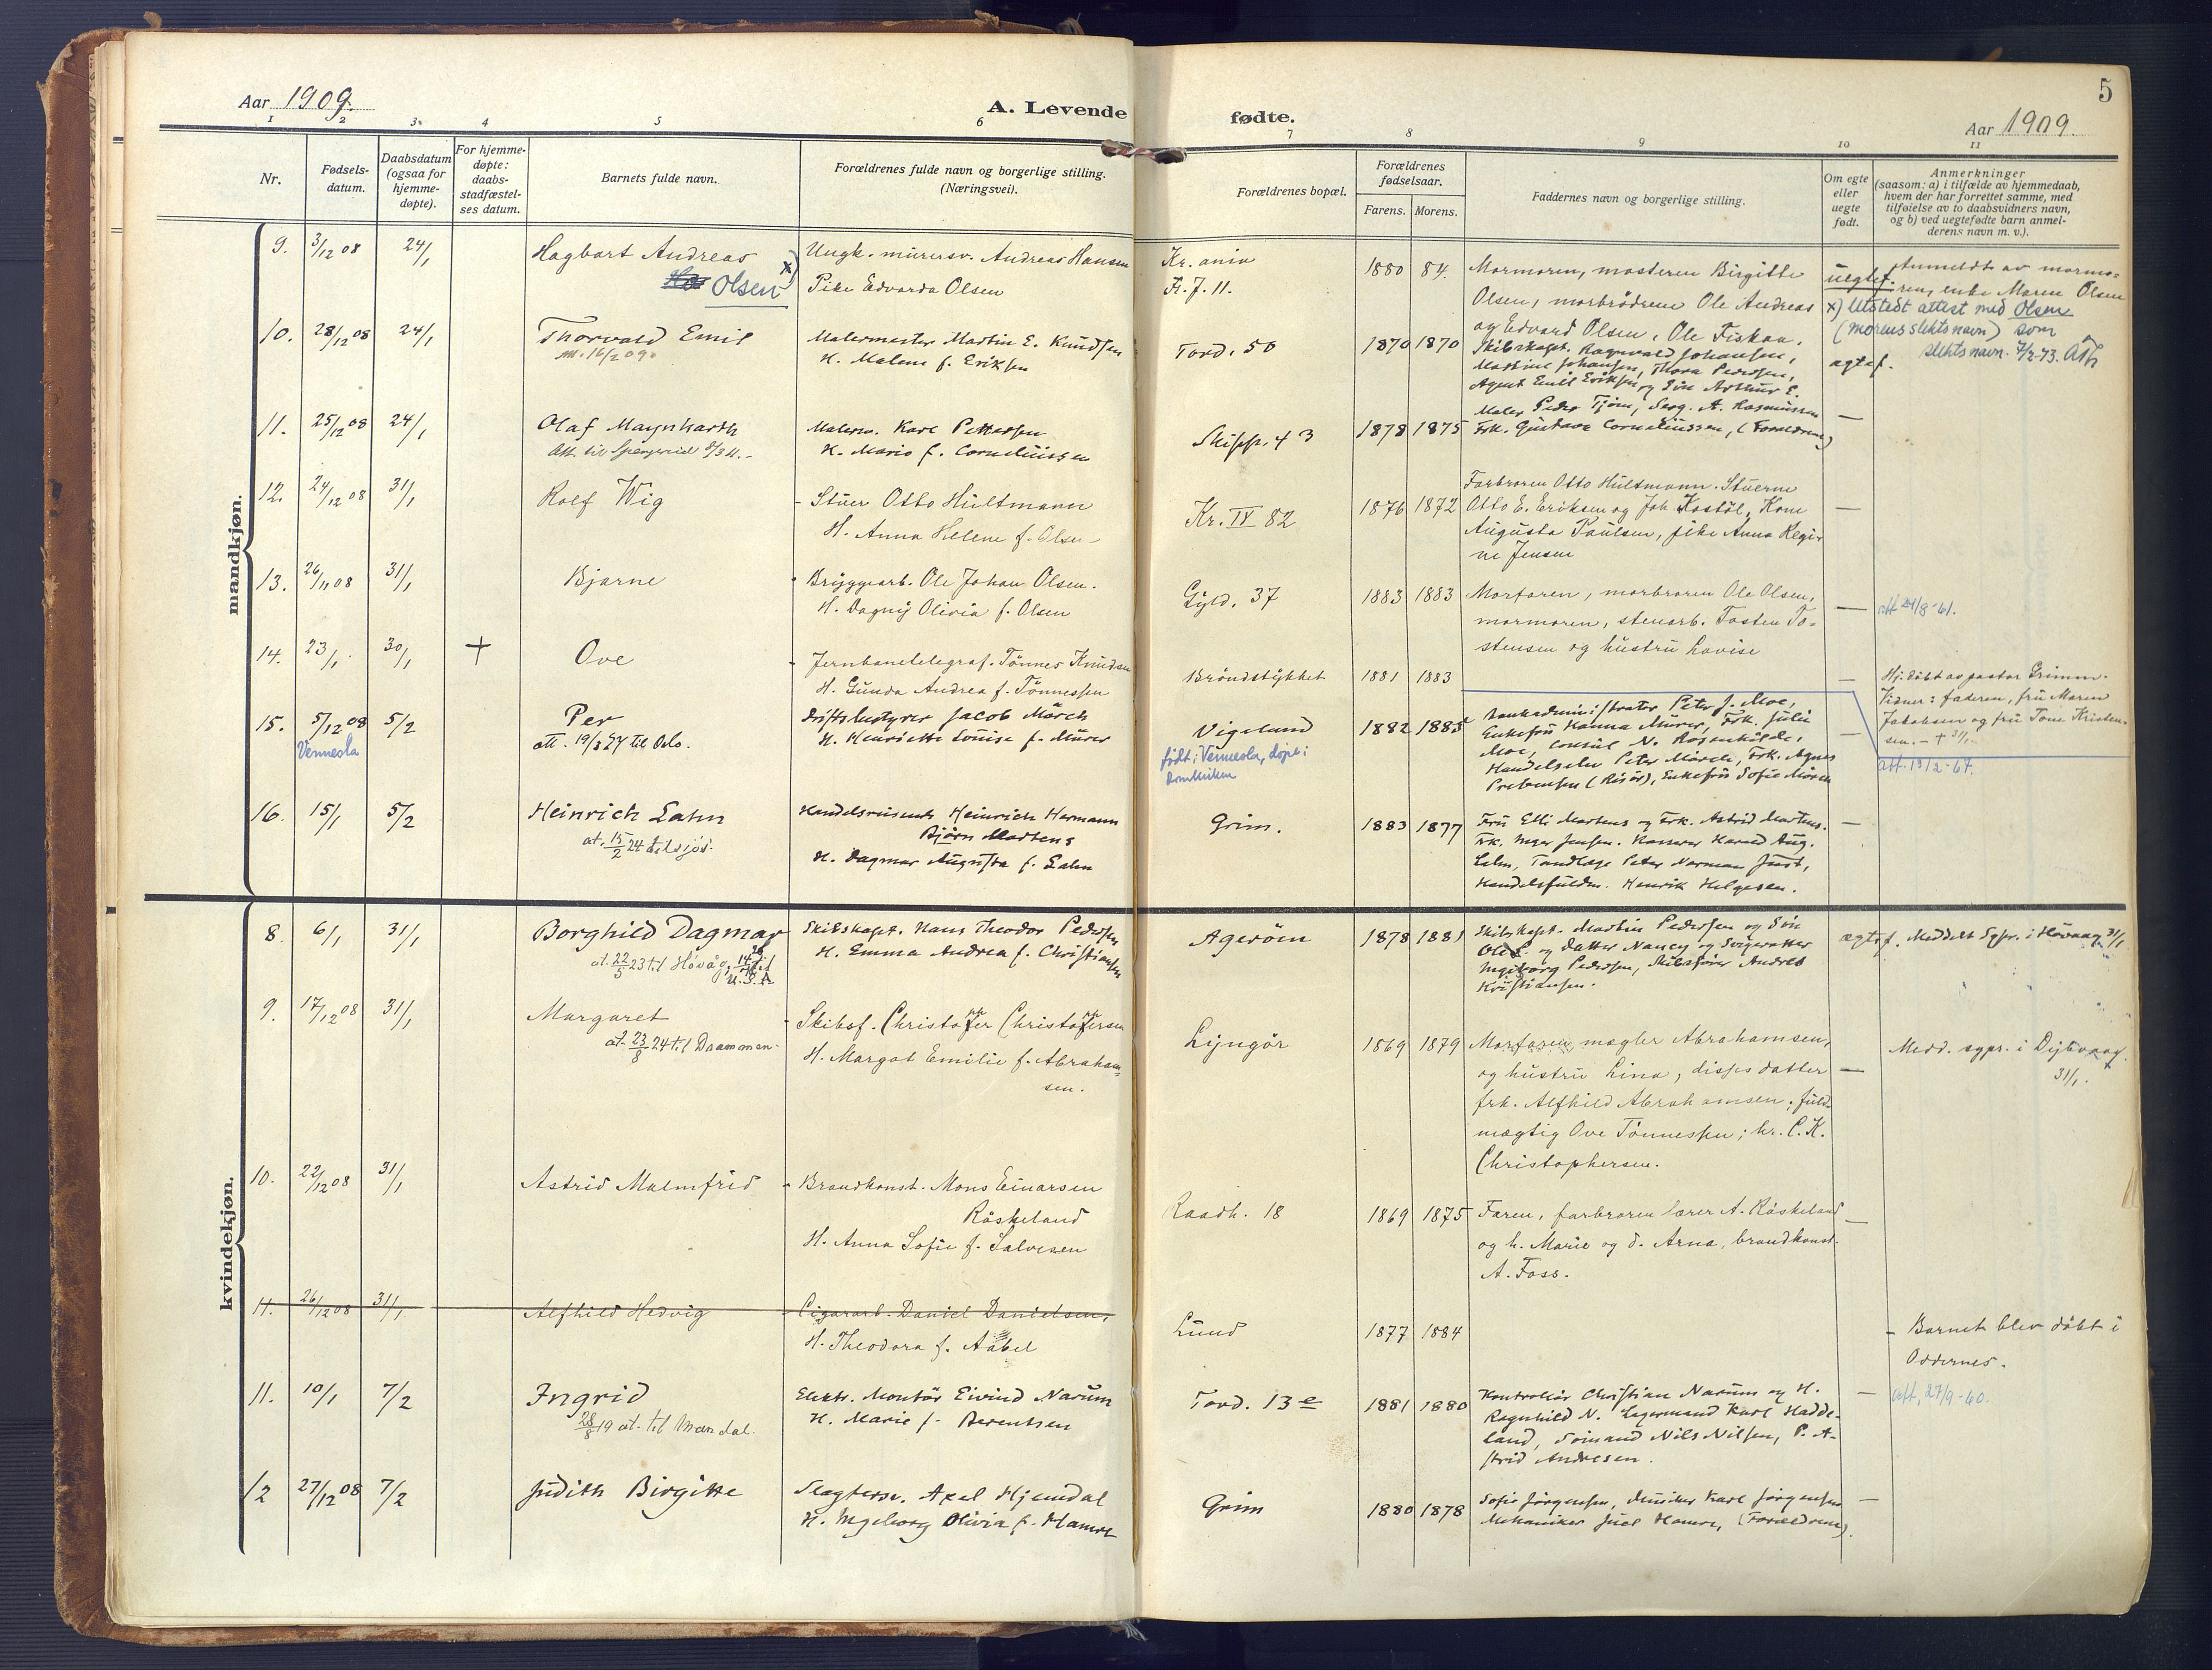 5
Aar 1909.
A. Levende
fødte.
Aar 1909.
1 2 3 4 5 6 7 8 9 10 11
Nr.
Fødsels-
datum.
Daabsdatum
(ogsaa for
hjemme-
døpte).
For hjemme-
døpte:
daabs-
stadfæstel-
ses datum.
Barnets fulde navn.
Forældrenes fulde navn og borgerlige stilling.
(Næringsvei).
Forældrenes bopæl.
Forældrenes
fødselsaar.
Farens. Morens.
Faddernes navn og borgerlige stilling.
Om egte
eller
uegte
født.
Anmerkninger
(saasom: a) i tilfælde av hjemmedaab,
hvem der har forrettet samme, med
tilføielse av to daabsvidners navn,
og b) ved uegtefødte barn anmel-
derens navn m. v.).
mandkjøn.
9. 3/12 08 24/1
Hagbart Andreas
Olsen x)
Ungk. murersv. Andreas Hansen
Pike Edvarda Olsen
Kr. ania
Fr. J. 11.
1880 84.
Mormoren, mosteren Birgitte
Olsen, morbrödrene Ole Andreas
og Edvard Olsen, Ole Fiskaa.
uegtef.
Anmeldt av mormo-
ren, enke Maren Olsen
x) Utstedt attest med Olsen
(morens slektsnavn) som
slektsnavn. 7/2-73.
10. 28/12 08 24/1
Thorvald Emil
16/2 09.
Malermester Martin E. Knudsen
H. Malene f. Eriksen
Tord. 50
1870 1870
Skibskapt. Ragnvald Johansen,
Martine Johansen, Thora Pedersen,
Agent Emil Eriksen og Sön Arthur E.
egtef.
11. 25/12 08 24/1
Olaf Maynharth
Malerm. Karl Pettersen
H. Marie f. Corneliussen
Skipp. 43
1878 1875
Maler Peder Tjöm, Serg. A. Rasmussen
Frk. Gustava Corneliussen, (Forældrene)
—
12. 24/12 08 31/1
Rolf Wig
Stuer Otto Hultmann
H. Anna Helene f. Olsen
Kr. IV 82
1876 1872
Farbroren Otto Hultmann. Stuerne
Otto E. Eriksen og Joh. Kostöl, Kone
Augusta Paulsen, pike Anna Regi-
ne Jensen
—
13. 26/11 08 31/1
Bjarne
Bryggearb. Ole Johan Olsen.
H. Dagny Olivia f. Olsen
Gyld. 37
1883 1883
Morfaren, morbroren Ole Olsen,
mormoren, stenarb. Tosten To-
stensen og hustru Lovise
—
att 24/8-61.
14. 23/1 30/1 +
Ove
Jernbanetelegraf. Tönnes Knudsen
H. Gunda Andrea f. Tönnessen
Bröndstykket
1881 1883
—
Hj. döbt av pastor Grimm.
Vidner: faderen, fru Maren
Jakobsen og fru Tone Kristen-
sen. – + 31/1.
15. 5/12 08 5/2
Vennesla
Per
att. 19/3 27 til Oslo.
Driftsbestyrer Jacob Mörch
H. Henriette Louise f. Mürer
Vigeland
født i Vennesla, døpt i
Domkirken
1882 1885
Bankadministrator Peter J. Moe,
Enkefru Hanna Mürer, Frk. Julie
Moe, Consul N. Rosenkilde,
Handelselev Peter Mörch, Frk. Agnes
Prebensen (Risör), Enkefru Sofie Mörch
—
att. 13/2-67.
16. 15/1 5/2
Heinrich Lahn
at. 15/2 24 til sjös.
Handelsreisende Heinrich Hermann
Björn Martens
H. Dagmar Augusta f. Lahn
Grim.
1883 1877
Fru Elli Martens og Frk. Astrid Martens.
Frk. Inger Jensen. Kasserer Harald Aug.
Lahn, Tandlæge Peter Norman Juest,
Handelsfuldm. Henrik Helgesen.
—
kvindekjøn.
8. 6/1 31/1
Borghild Dagmar
at. 22/5 23 til Høvåg, til
U.S.A
Skibskapt. Hans Theodor Pedersen
H. Emma Andrea f. Christiansen
Ageröen
1878 1881
Skibskapt. Martin Pedersen og Sön
Ole P. og Datter Nancy og Svigerdatter
Ingeborg Pedersen, Skibsförer Andreas
Kristiansen.
egtef.
Meddelt Sgpr. i Hövaag 31/1
9. 17/12 08 31/1
Margaret
at. 23/8 24 til Drammen
Skibsf. Christoffer Christoffersen
H. Margot Emilie f. Abraham-
sen.
Lyngör
1869 1879
Morfaren mægler Abrahamsen,
og hustru Lina, disses datter
frk. Alfhild Abrahamsen; fuld-
mægtig Ove Tönnessen; hr. C. K.
Christophersen.
—
Medd. sgpr. i Dybvaag
31/1.
10. 22/12 08 31/1
Astrid Malmfrid
Brandkonst. Mons Einarsen
Röskeland
H. Anna Sofie f. Salvesen
Raadh. 18
1869 1875
Faren, farbroren lærer A. Röskeland
og h. Marie og d. Arna, brandkonst.
A. Foss.
—
11. 26/12 08 31/1
Alfhild Hedvig
Cigararb. Daniel Danielsen,
H. Theodora f. Aabel
Lund
1877 1884
– Barnet blev döbt i
Oddernes.
11. 10/1 7/2
Ingrid
28/8 19 at. til Mandal.
Elektr. Montör Eivind Narum
H. Marie f. Berentsen
Tord. 13 e
1881 1880
Kontrollör Christian Narum og H.
Ragnhild N. Lagermand Karl Hadde-
land, Sömand Nils Nilsen, P. A-
strid Andresen.
—
att, 27/9-60.
12 27/12 08 7/2
Judith Birgitte
Slagtersv. Axel Hjemdal
H. Ingeborg Olivia f. Hamre
Grim
1880 1878
Sofie Jörgensen, Musiker Karl Jörgensen
Mekaniker Juel Hamre, (Forældrene).
—